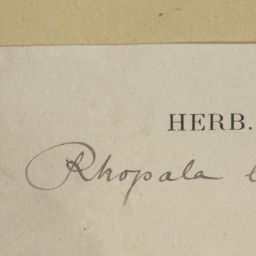 HERB.
Rhopala